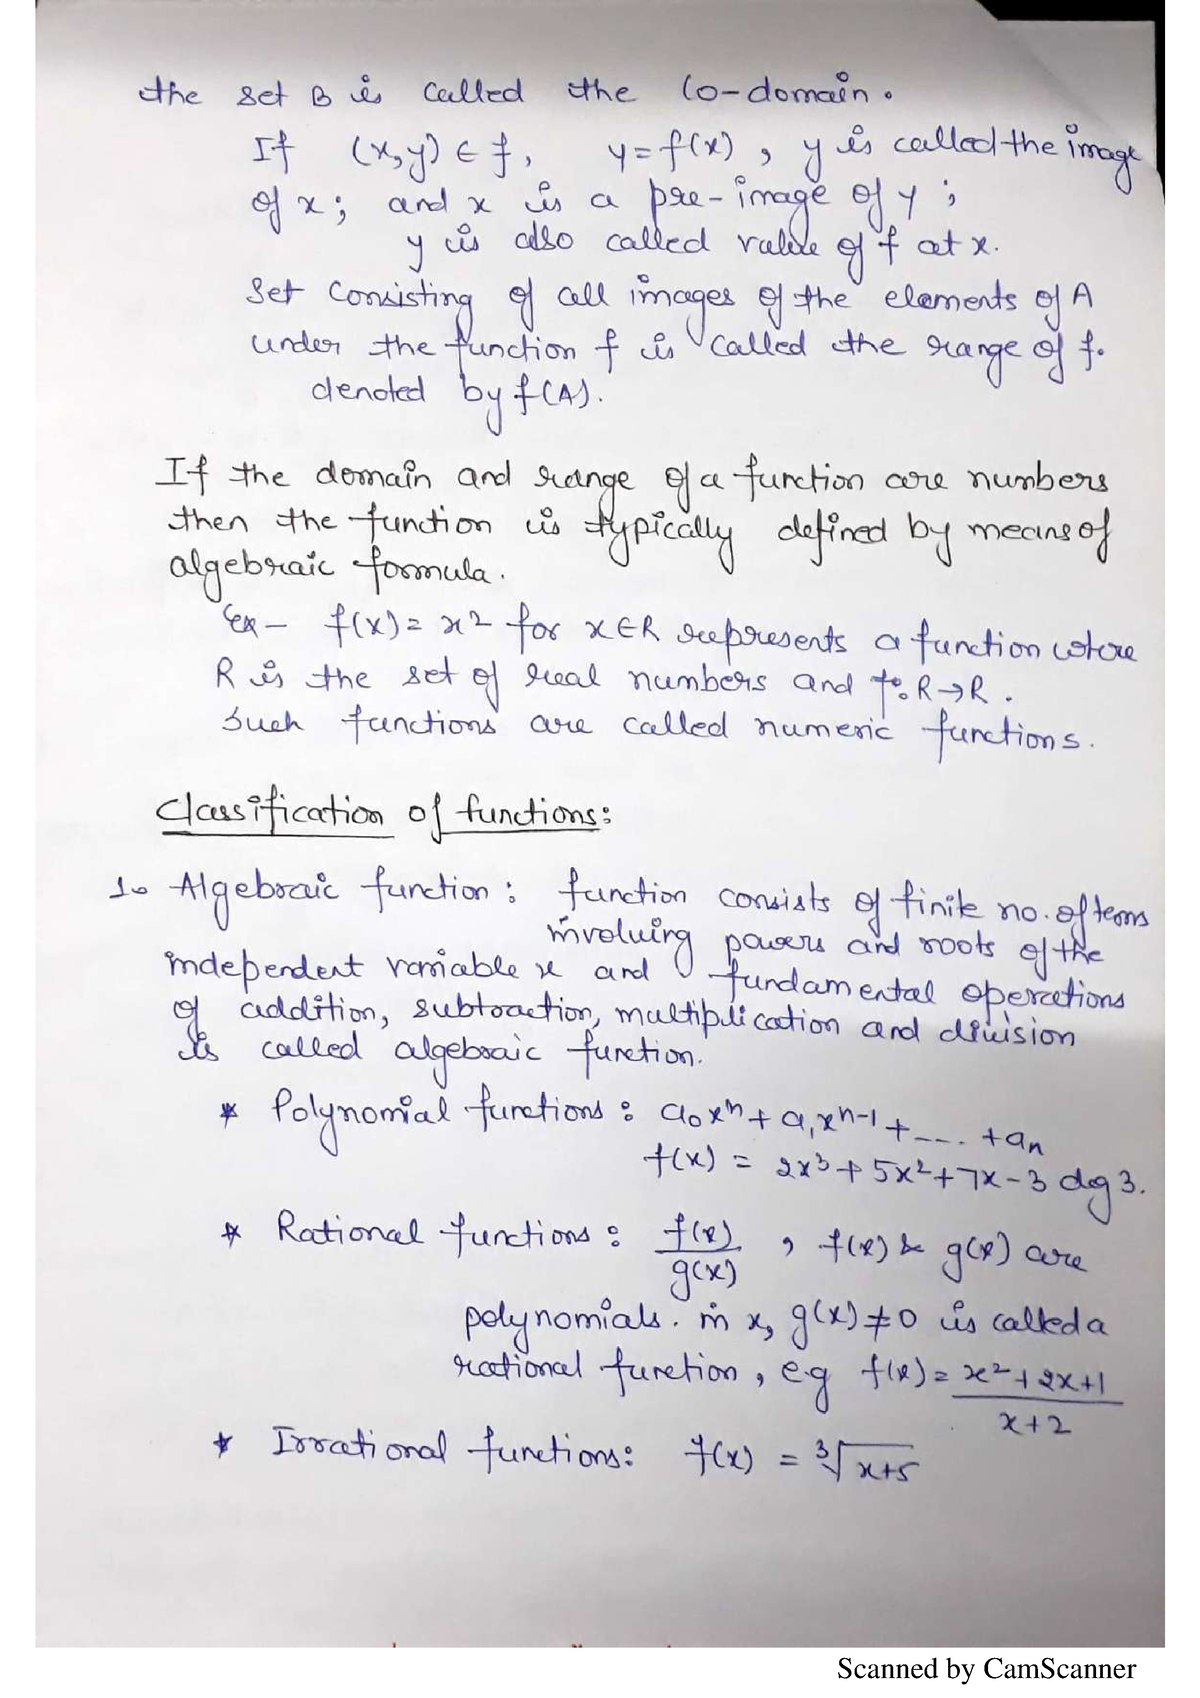 the set B is called the co-domain.
If (x,y) ∈ f, y = f(x), y is called the image
of x; and x is a pre-image of y;
y is also called value of f at x.
Set consisting of all images of the elements of A
under the function f is called the range of f.
denoted by f(A).
If the domain and range of a function are numbers
then the function is typically defined by means of
algebraic formula.
Ex- f(x) = x² for x∈R represents a function where
R is the set of real numbers and f: R→R.
Such functions are called numeric functions.
Classification of functions:
1. Algebraic function: function consists of finite no. of terms
involving powers and roots of the
independent variable x and fundamental operations
of addition, subtraction, multiplication and division
is called algebraic function.
* Polynomial functions: a₀xⁿ + a₁xⁿ⁻¹ + ---- + aₙ
f(x) = 2x³ + 5x² + 7x - 3 deg 3.
* Rational functions: f(x)/g(x), f(x) & g(x) are
polynomials. in x, g(x) ≠ 0 is called a
rational function, e.g f(x) = x²+2x+1/x+2
* Irrational functions: f(x) = ³√x+5
Scanned by CamScanner